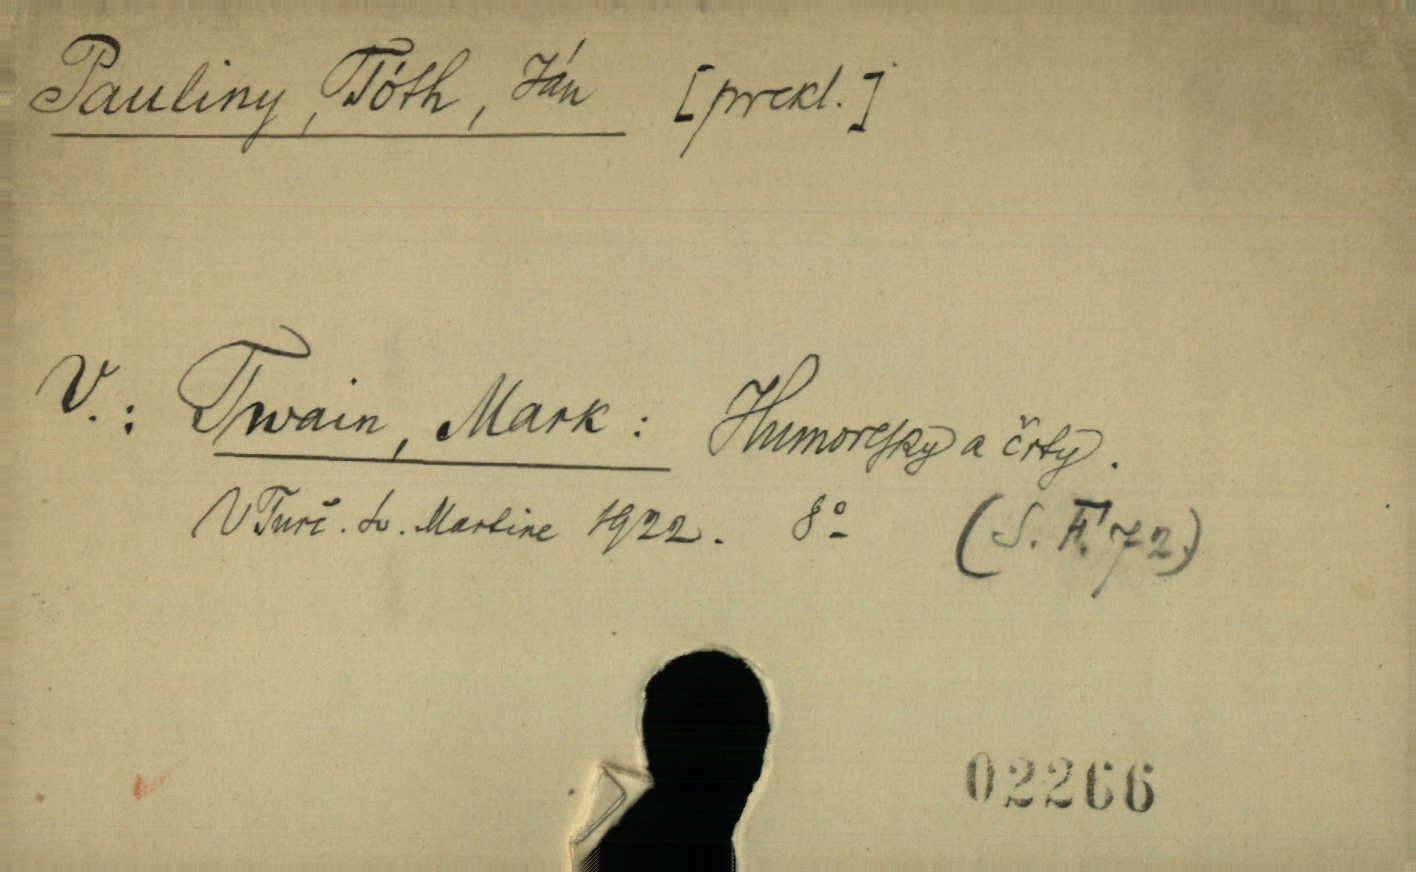 Pauliny, Tóth, Ján [prekl.]
V.: Twain, Mark: Humoresky a črty.
V Turč. sv. Martine 1922. 8° (S. F. 72.)
02266